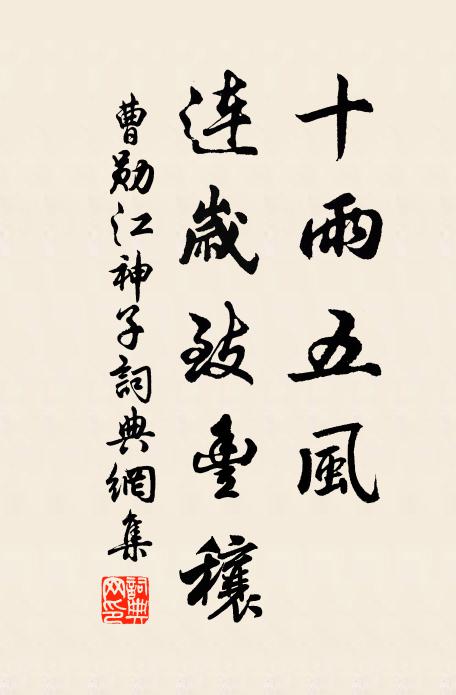 十雨五風
連歲致豐穰
曹勛江神子詞典網集
詞典網印